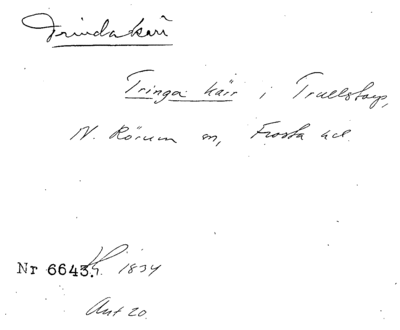 Trindakärr
Tringa kärr i Trullstorp,
N. Rörum sn, Frosta hd
Nr 6643. 1834
Ant 20